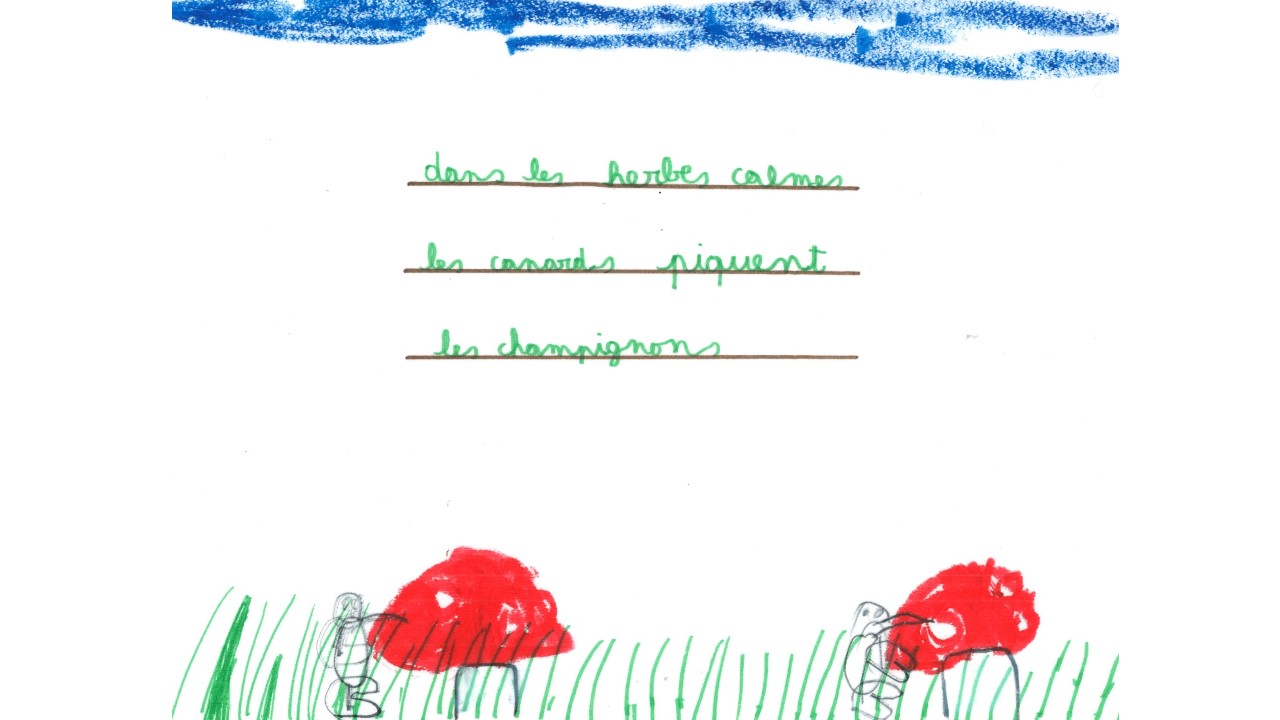 dans les herbes calmes
les canards piquent
les champignons